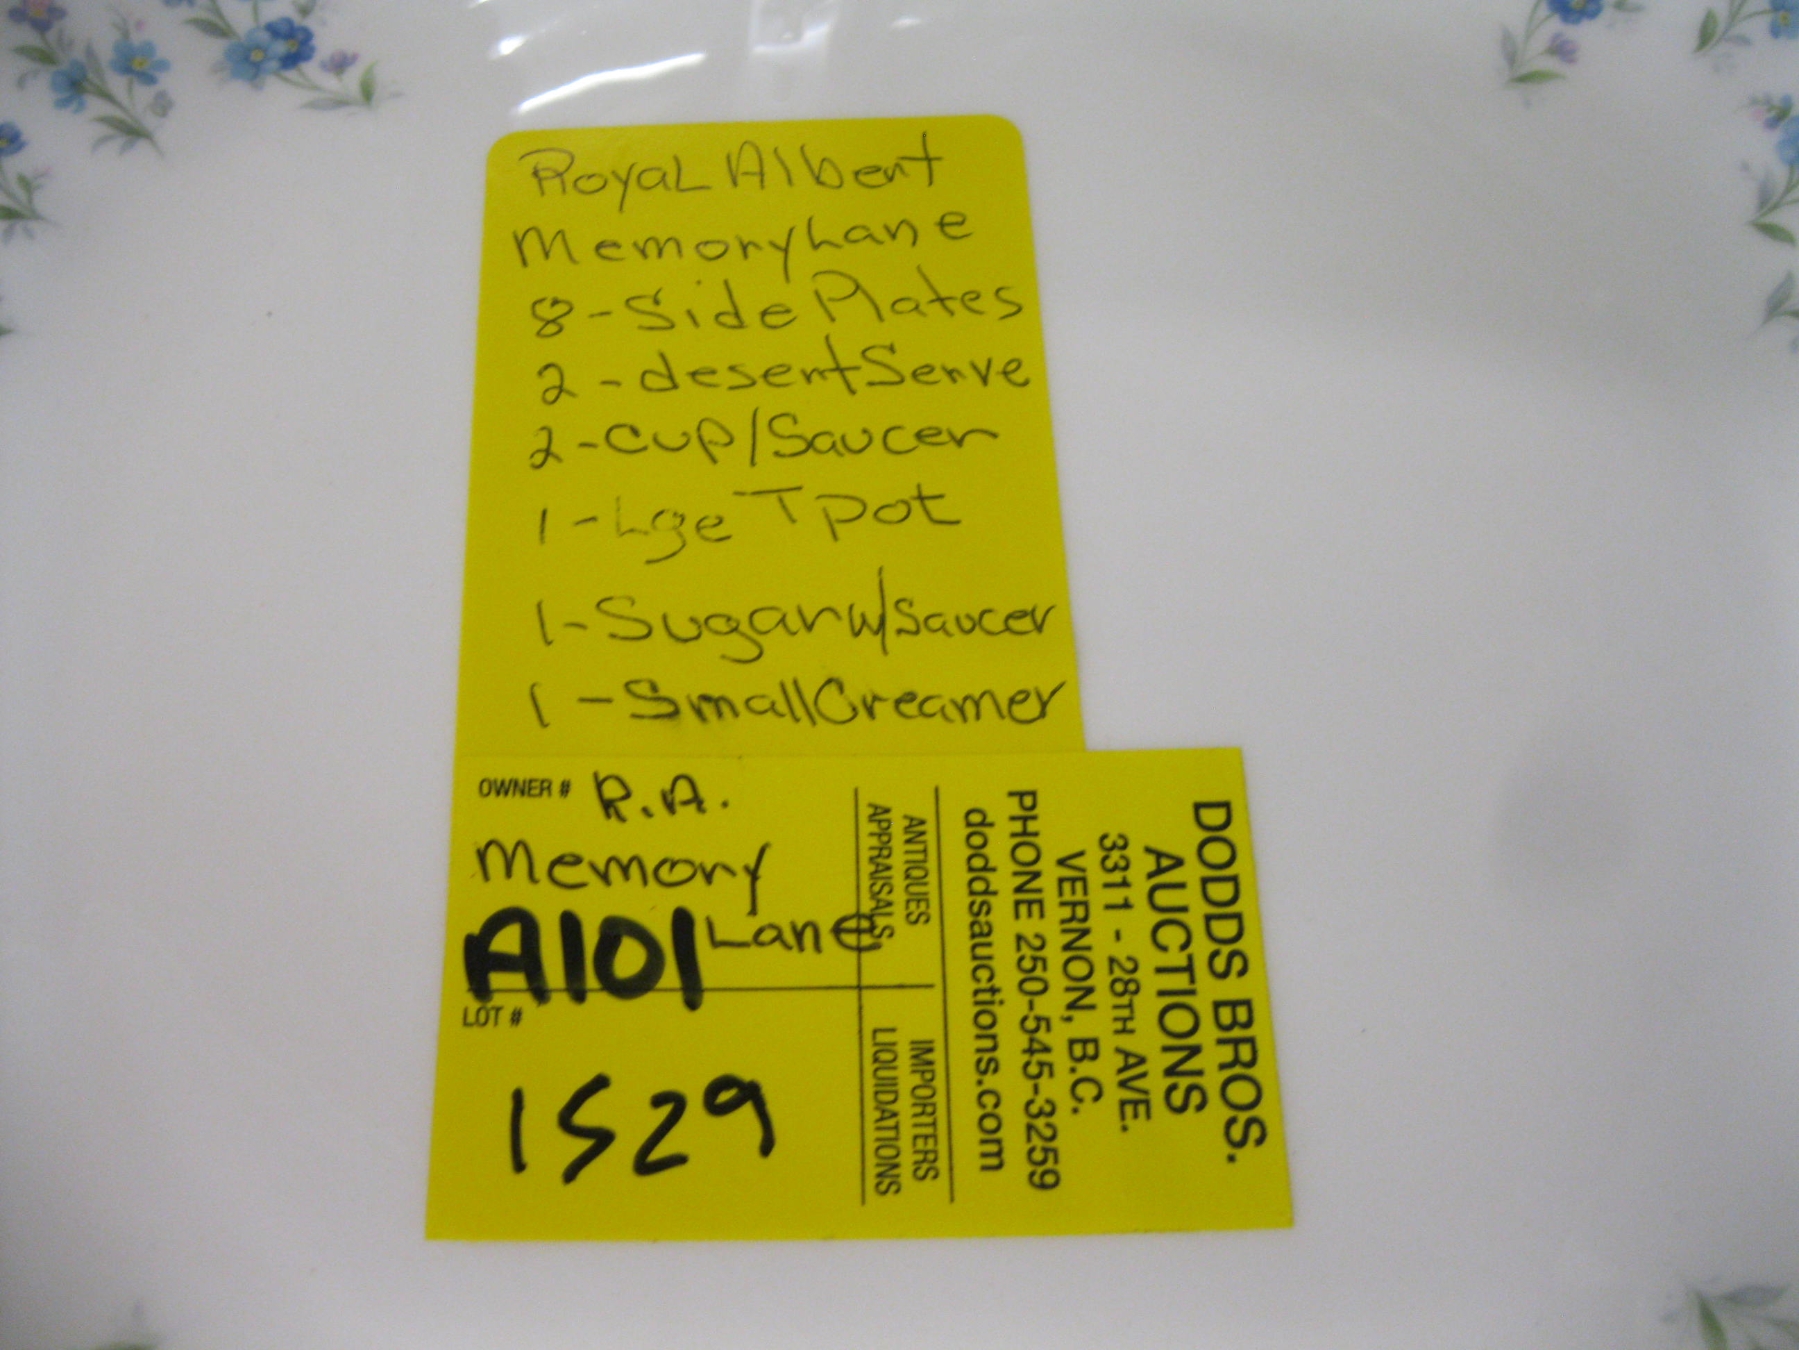 Royal Albert
Memory Lane
8 - Side Plates
2 - desert Serve
2 - Cup/Saucer
1 - Lge T pot
1 - Sugar w/ saucer
1 - Small Creamer
OWNER # R.A.
Memory
A101 Lane
LOT #
1529
ANTIQUES
APPRAISALS
IMPORTERS
LIQUIDATIONS
DODDS BROS.
AUCTIONS
3311 - 28TH AVE.
VERNON, B.C.
PHONE 250-545-3259
doddsauctions.com